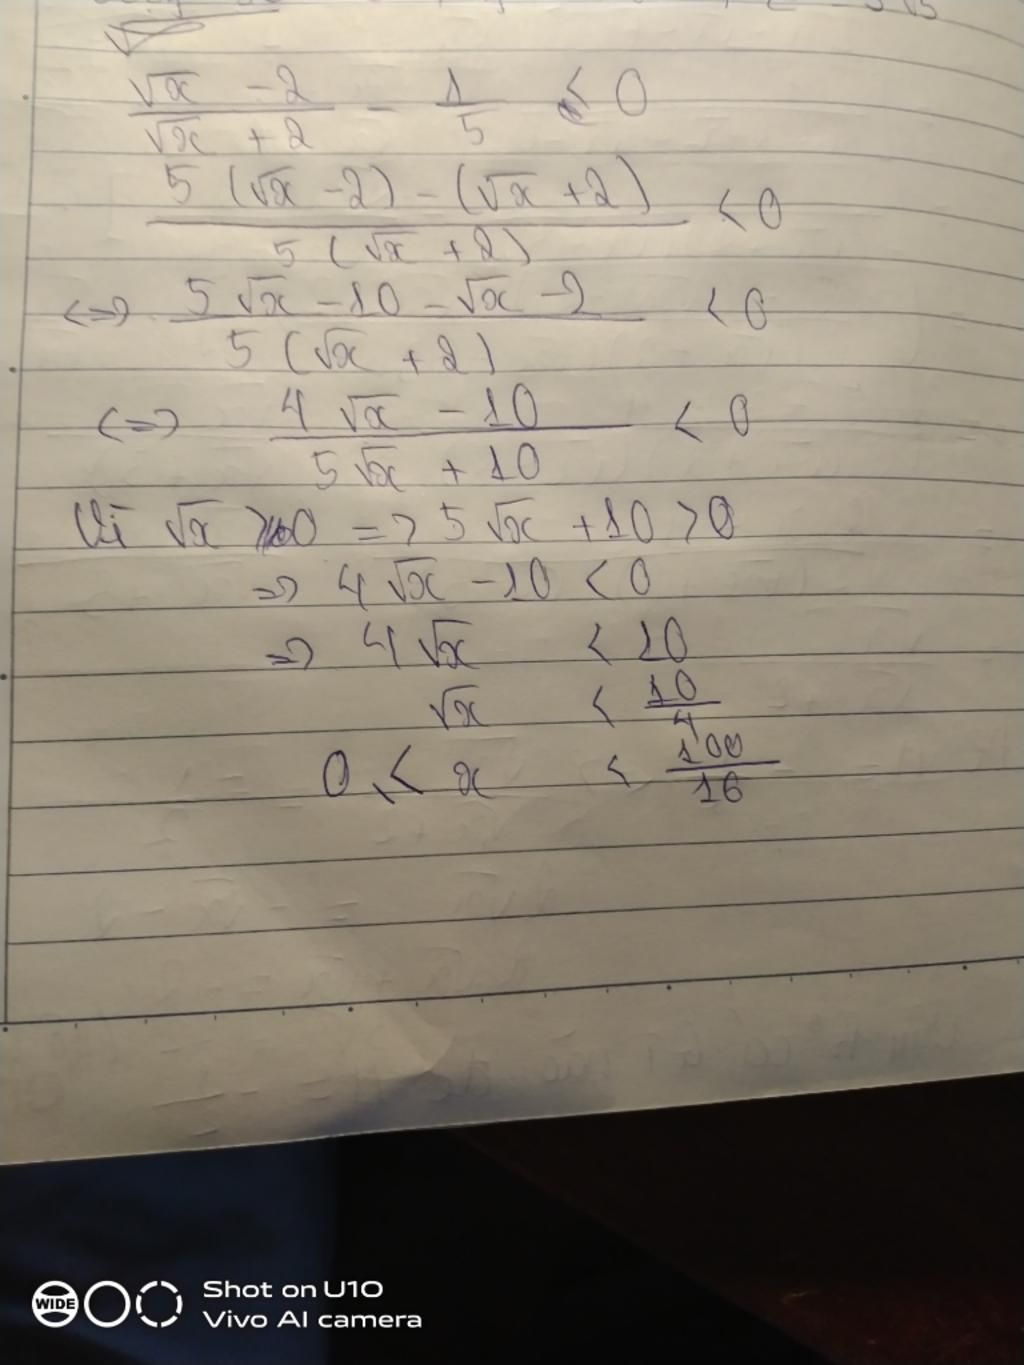 √x - 2 / √x + 2 - 1/5 < 0
5 (√x - 2) - (√x + 2) / 5 (√x + 2) < 0
<=> 5√x - 10 - √x - 2 / 5 (√x + 2) < 0
<=> 4√x - 10 / 5√x + 10 < 0
Vì √x ≥ 0 => 5√x + 10 > 0
=> 4√x - 10 < 0
=> 4√x < 10
√x < 10/4
0 ≤ x < 100/16
WIDE
Shot on U10
Vivo AI camera